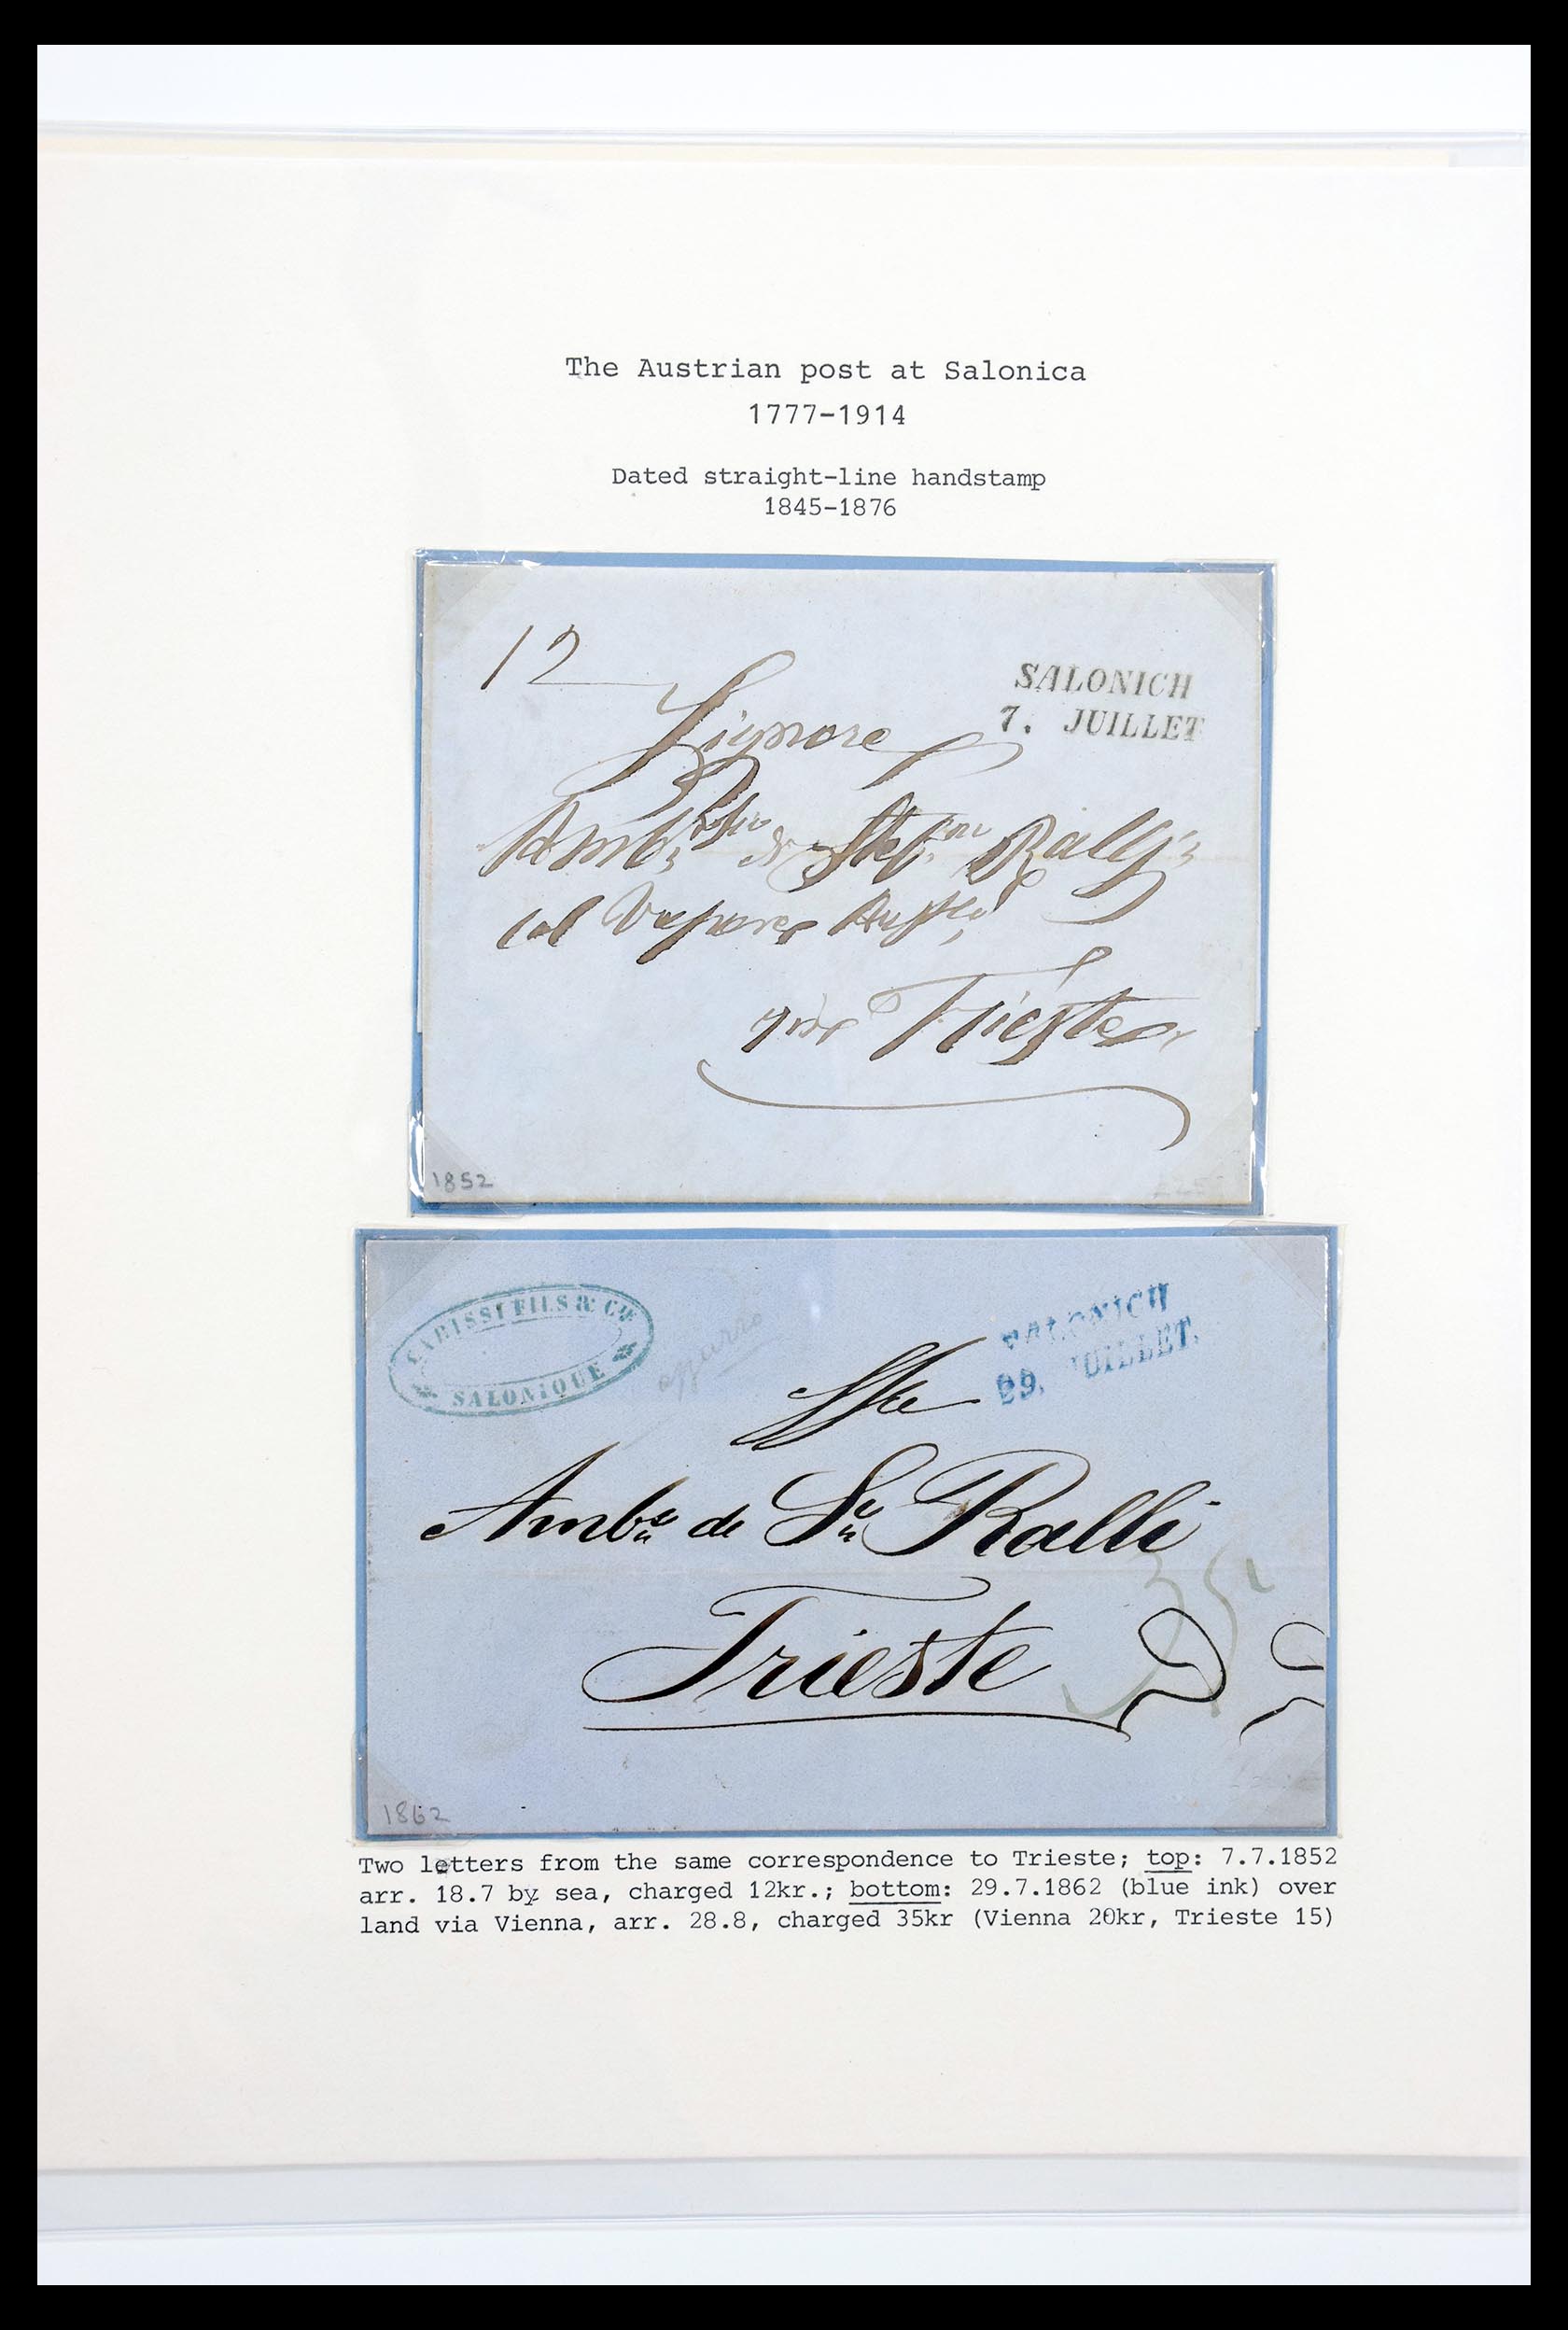 The Austrian post at Salonica
1777-1914
Dated straight-line handstamp
1845-1876
12
SALONICH
7. JUILLET
Signore
Ralli
Trieste
1852
FILS & CIE
SALONIQUE
SALONICH
29. JUILLET.
de Ralli
35
Trieste
1862
Two letters from the same correspondence to Trieste; top: 7.7.1852
arr. 18.7 by sea, charged 12kr.; bottom: 29.7.1862 (blue ink) over
land via Vienna, arr. 28.8, charged 35kr (Vienna 20kr, Trieste 15)